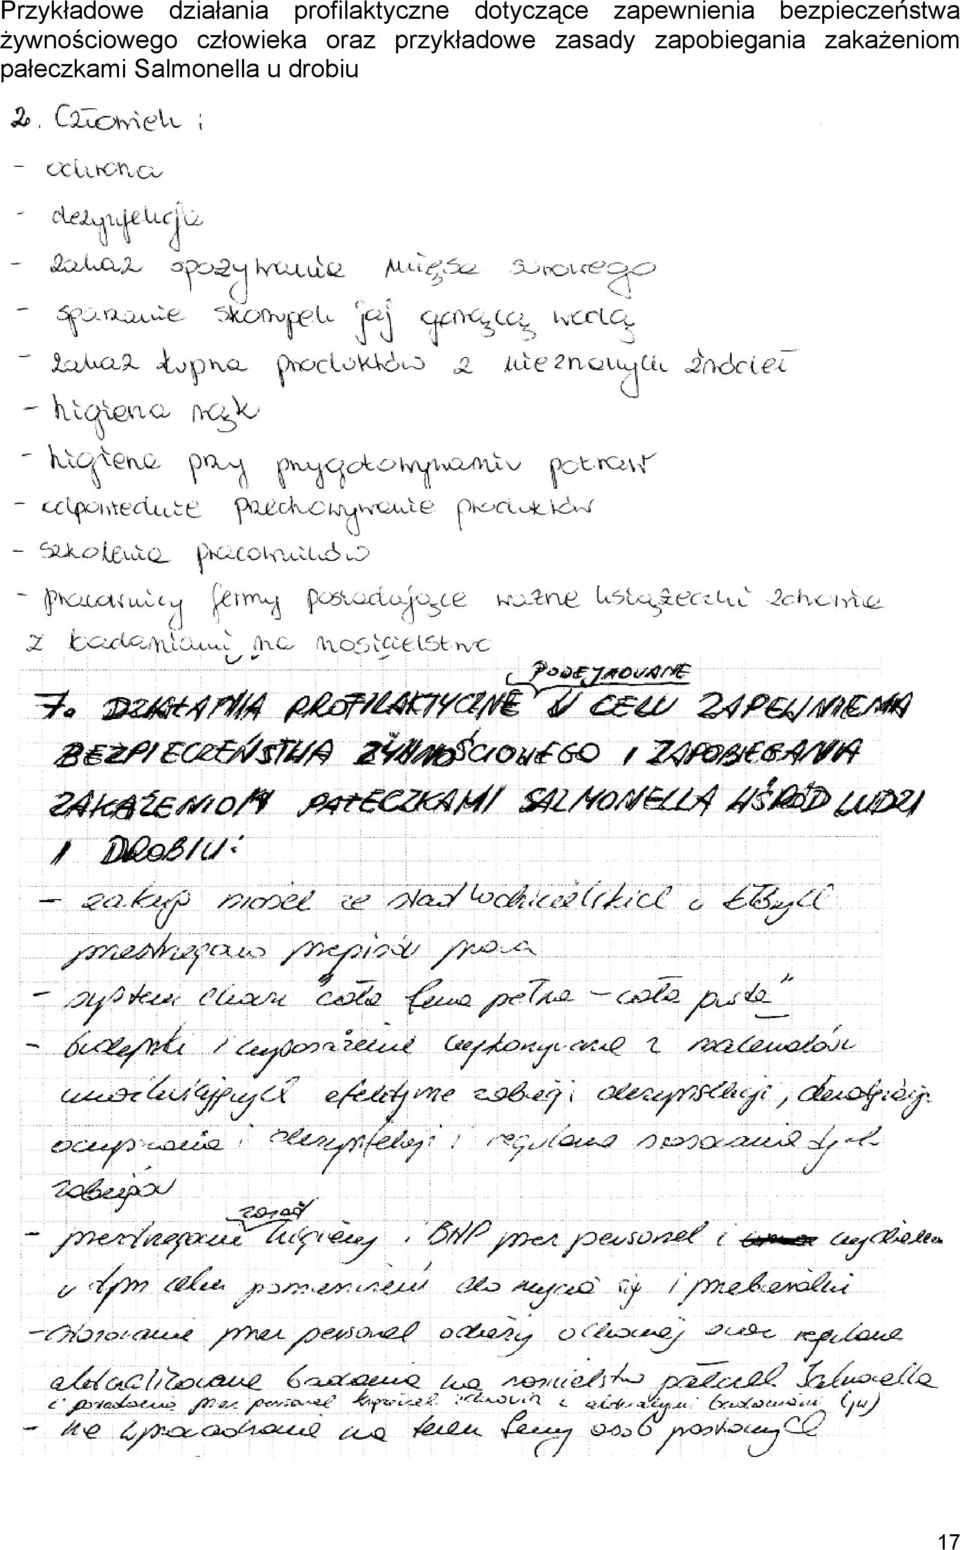 Przykładowe działania profilaktyczne dotyczące zapewnienia bezpieczeństwa
żywnościowego człowieka oraz przykładowe zasady zapobiegania zakażeniom
pałeczkami Salmonella u drobiu
2. Człowiek :
- ochrona
- dezynfekcja
- zakaz spożywania mięsa surowego
- sparzanie skorupek jaj gorącą wodą
- zakaz kupna produktów z nieznanych źródeł
- higiena rąk
- higiena przy przygotowywaniu potraw
- odpowiednie przechowywanie produktów
- szkolenia pracowników
- pracownicy fermy posiadające ważne książeczki zdrowia
z badaniami na nosicielstwo
PODEJMOWANE
7. DZIAŁANIA PROFILAKTYCZNE W CELU ZAPEWNIENIA
BEZPIECZEŃSTWA ŻYWNOŚCIOWEGO I ZAPOBIEGANIA
ZAKAŻENIOM PAŁECZKAMI SALMONELLA WŚRÓD LUDZI
I DROBIU:
- zakup piskląt ze stad hodowlanych w których
przestrzegano przepisów prawa
- system chowu "cała ferma pełna - cała pusta"
- budynki i wyposażenie wykonywane z materiałów
umożliwiających efektywne zabiegi dezynfekcji,
oczyszczania i dezynfekcji i regularne stosowanie tych
zabiegów
zasad
- przestrzeganie higieny i BHP przez personel i wydzielenie
w tym celu pomieszczeń do mycia się i przebieralni
- stosowanie przez personel odzieży ochronnej oraz regularne
aktualizowane badania na nosicielstwo pałeczek Salmonella
i posiadanie przez personel książeczek zdrowia z aktualnymi badaniami (jw)
- nie wprowadzanie na teren fermy osób postronnych
17